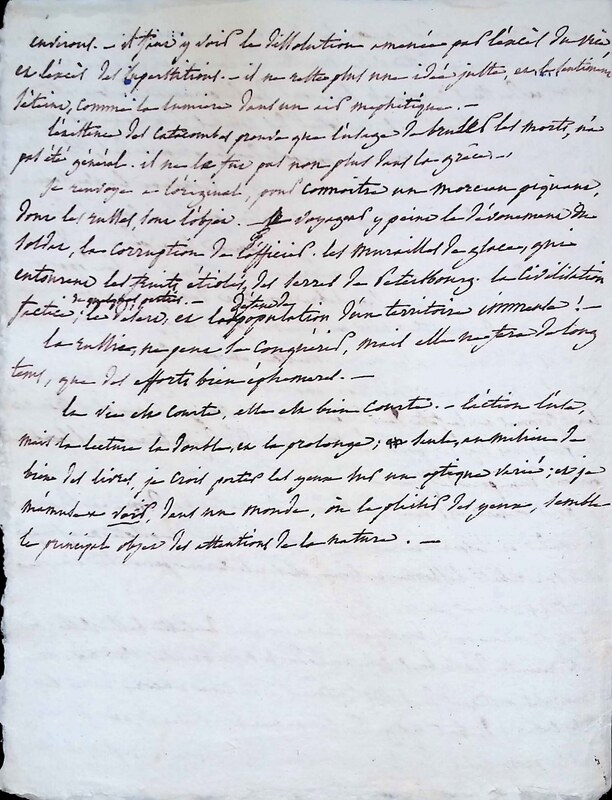 environs. — il faut y voir la dissolution amenée par l'excès du vice
et l'excès des superstitions. — il ne reste plus une idée juste, et le sentiment
s'éteint, comme la lumière dans un air mephitique. —
l'existence des catacombes prouve que l'usage de bruler les morts, n'a
pas été général. il ne le fut pas non plus dans la grèce. —
je renvoye à l'original, pour connoitre un morceau piquant,
dont les russes, sont l'objet. — le voyageur y peint le dévouement du
soldat, la corruption de l'officier. les murailles de glace, qui
entourent les fruits etiolés, des serres de Petersbourg. la civilisation
factice, de quelques parties. — le désert, et la dépopulation d'un territoire immense ! —
la russie, ne peut se conquérir, mais elle ne fera de long
tems, que des efforts bien éphemeres. —
la vie est courte, elle est bien courte. — l'action l'use,
mais la lecture la double, et la prolonge ; seule, au milieu de
bien des livres, je crois porter les yeux sur un optique varié ; et je
m'amuse à voir, dans un monde, où le plaisir des yeux, semble
le principal objet des attentions de la nature. —